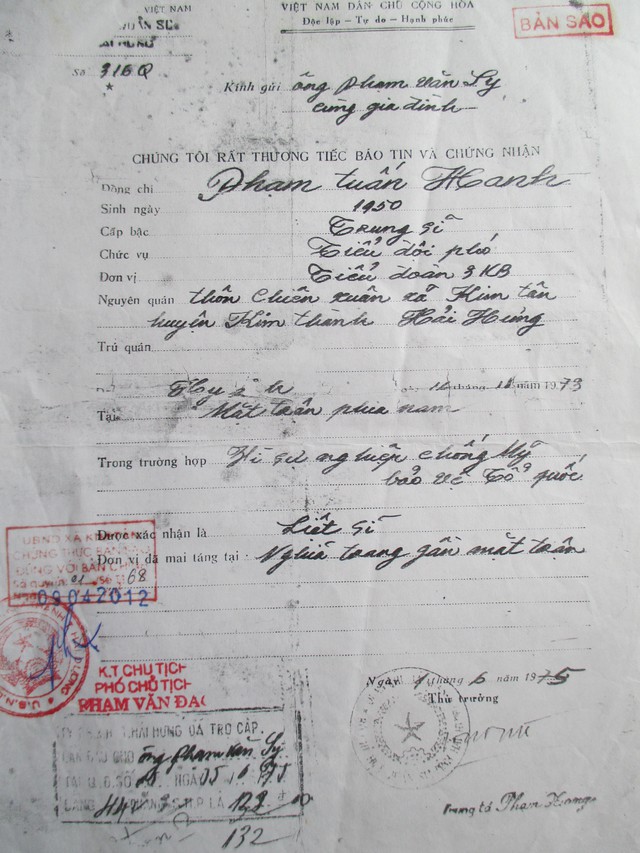 VIỆT NAM
VIỆT NAM DÂN CHỦ CỘNG HÒA
Độc lập - Tự do - Hạnh phúc
BẢN SAO
Số 316Q
Kính gửi ông Phạm Văn Sy
cùng gia đình
CHÚNG TÔI RẤT THƯƠNG TIẾC BÁO TIN VÀ CHỨNG NHẬN
Đồng chí Phạm Tuấn Hanh
Sinh ngày 1950
Cấp bậc Trung sĩ
Chức vụ Tiểu đội phó
Đơn vị Tiểu đoàn 3 KB
Nguyên quán thôn Chiến xuân xã Kim tân
huyện Kim thành Hải Hưng
Trú quán
Hy sinh tháng năm 1973
Tại Mặt trận phía nam
Trong trường hợp Vì sự nghiệp chống Mỹ
bảo vệ Tổ quốc
Được xác nhận là Liệt sĩ
Đơn vị đã mai táng tại: Nghĩa trang gần mặt trận
UBND XÃ
CHỨNG THỰC BẢN
ĐÚNG VỚI BẢN
68
09042012
K.T CHỦ TỊCH
PHÓ CHỦ TỊCH
PHẠM VĂN
Ngày tháng 6 năm 1975
Thủ trưởng
HẢI HƯNG ĐÃ TRỢ CẤP
CHO ông Phạm Văn Sy
NGÀY 05
LÀ
132
Trung tá Phạm